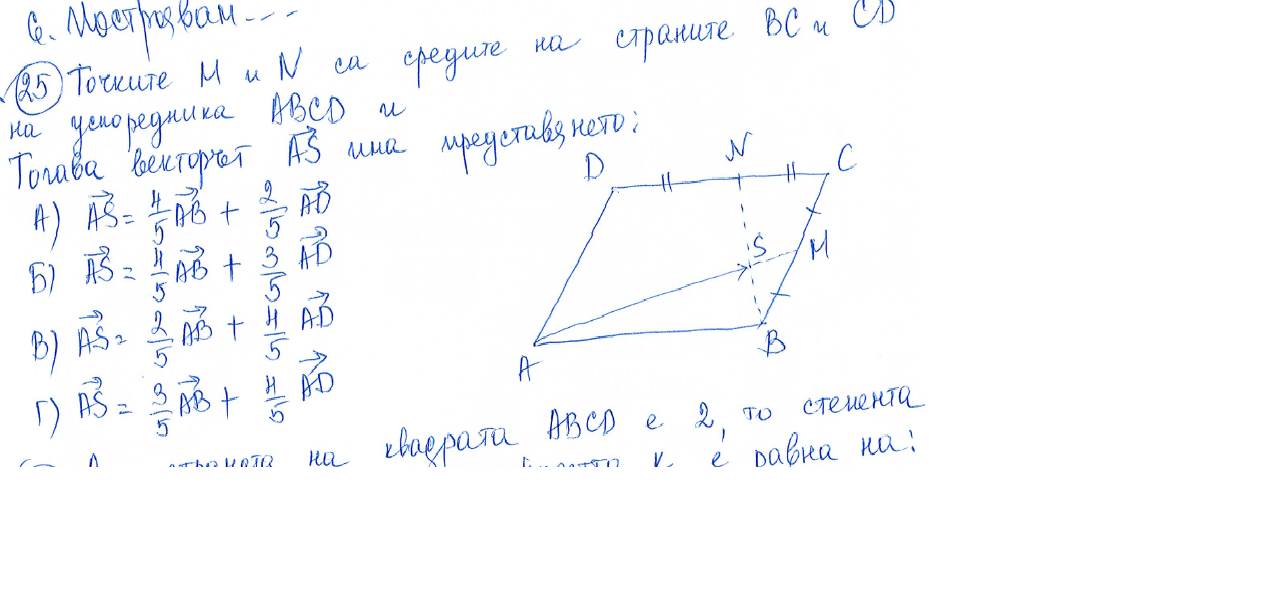 6. Построявам...
25 Точките M и N са средите на страните BC и CD
на успоредника ABCD и
Тогава векторът AS има представянето:
А) AS = 4/5 AB + 2/5 AD
Б) AS = 4/5 AB + 3/5 AD
В) AS = 2/5 AB + 4/5 AD
Г) AS = 3/5 AB + 4/5 AD
D N C
S M
A B
страната на квадрата ABCD е 2, то степента
е равна на: